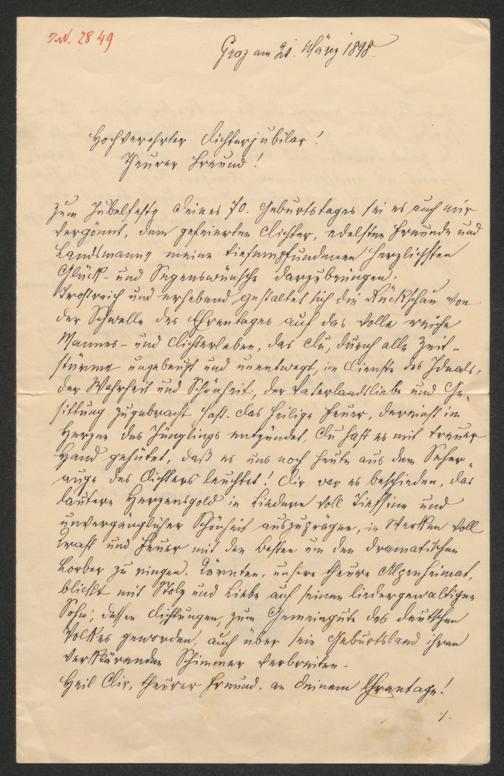 I.N. 2849
Graz am 21. März 1898.
Hochverehrter Dichterjubilar!
Theurer Freund!
Zum Jubelfeste Deines 70. Geburtstages sei es auch mir
vergönnt, dem gefeierten Dichter, edelsten Freunde und
Landsmanne meine tiefempfundenen herzlichsten
Glück- und Segenswünsche darzubringen.
Trostreich und erhebend gestaltet sich die Rückschau von
der Schwelle des Ehrentages auf das volle reiche
Mannes- und Dichterleben, das Du, durch alle Zeit-
stürme ungebeugt und unentwegt, im Dienste des Ideals,
der Wahrheit und Schönheit, der Vaterlandsliebe und Ge-
sittung zugebracht hast. Das heilige Feuer, dereinst im
Herzen des Jünglings entzündet, Du hast es mit treuer
Hand gehütet, daß es uns noch heute aus dem Seher-
auge des Dichters leuchtet! Dir war es beschieden, das
lautere Herzensgold in Liedern voll Tiefsinn und
unvergänglicher Schönheit auszuprägen, in Werken voll
Kraft und Feuer mit den Besten um den dramatischen
Lorber zu ringen. Kärnten, unsere theure Alpenheimat,
blickt mit Stolz und Liebe auf seinen liedergewaltigen
Sohn, dessen Dichtungen, zum Gemeingute des deutschen
Volkes geworden, auch über sein Geburtsland ihren
verklärenden Schimmer verbreiten.
Heil Dir, theurer Freund, an Deinem Ehrentage!